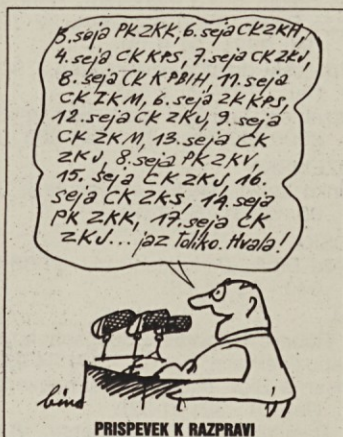 5. seja PK ZKK, 6. seja CK ZKH,
4. seja CK KPS, 7. seja CK ZKJ,
8. seja CK KPBIH, 11. seja
CK ZKM, 6. seja ZK KPS,
12. seja CK ZKJ, 9. seja
CK ZKM, 13. seja CK
ZKJ, 8. seja PK ZKV,
15. seja CK ZKJ, 16.
seja CK ZKS, 14. seja
PK ZKK, 17. seja CK
ZKJ... jaz toliko. Hvala!
PRISPEVEK K RAZPRAVI